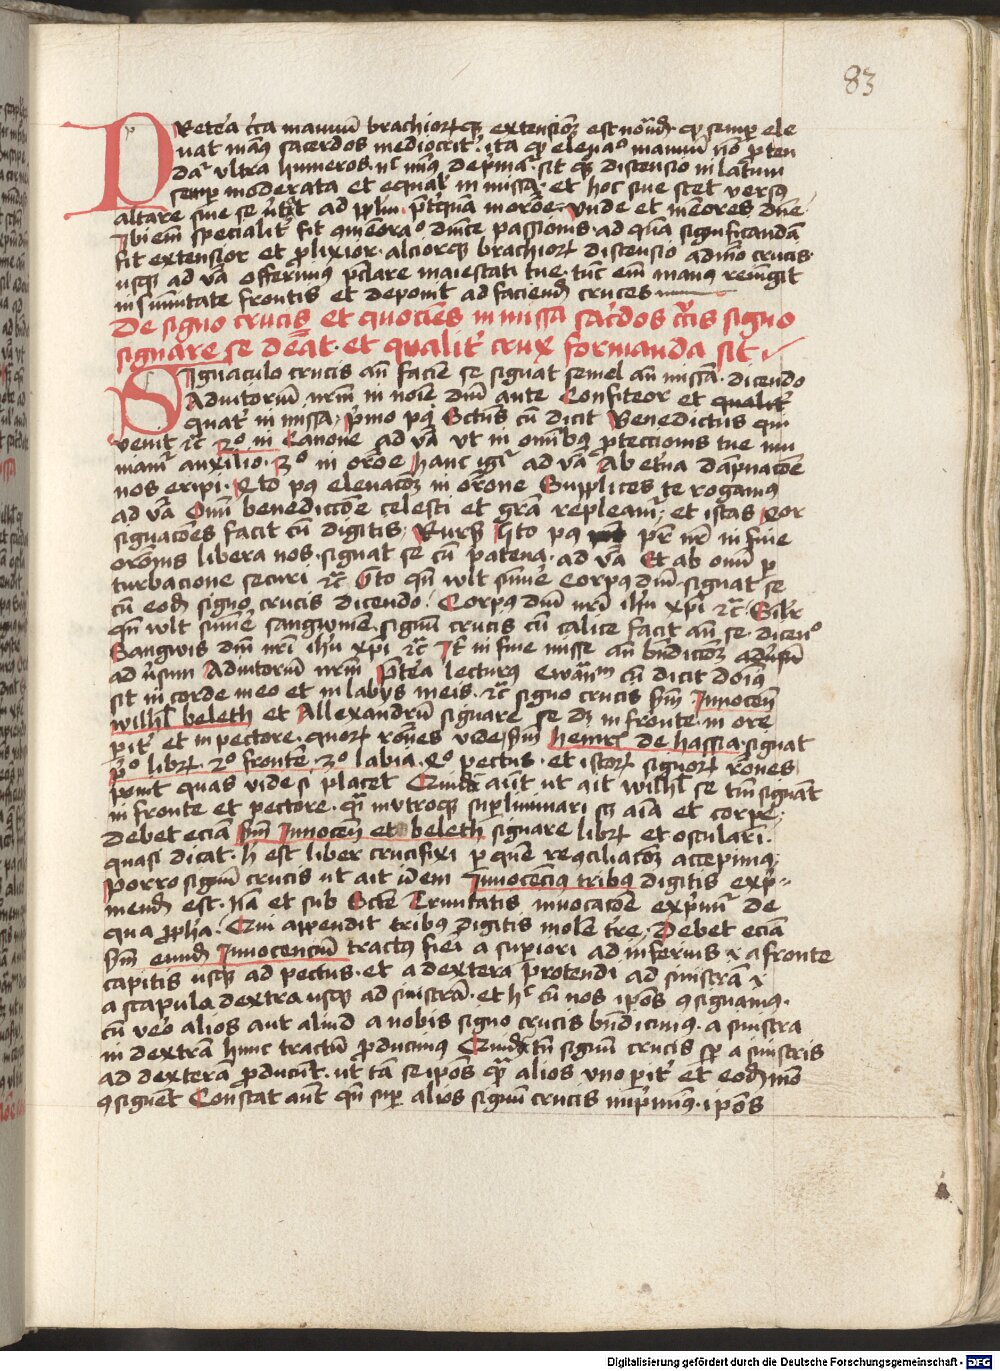 83
PRetea circa manuum brachiorumque extensionem est notandum quod semper ele
uat manus sacerdos mediocriter ita quod eleuatio manuum non proten
datur ultra humeros nec minus deprimatur sit quoque distensio in latum
semper moderata et equalis in missa et hoc siue stet versus
altare siue se vertat ad populum preterquam in oratione Vnde et memores domine
Ibi enim specialiter fit commemoratio dominice passionis ad quam significandam
fit extensior et prolixior alciorque brachiorum distensio ad modum crucis
usque ad verba offerimus preclare maiestati tue tunc enim manus reiungit
in summitate frontis et deponit ad faciendum cruces
De signo crucis et quociens in missa sacerdos crucis signo
signare se debeat et qualiter crux formanda sit
SIgnaculo crucis ante faciem se signat semel ante missam dicendo
Adiutorium nostrum in nomine domini ante Confiteor et qualiter
quater in missa primo post Sanctus cum dicit Benedictus qui
venit etc 2o in Canone ad verba vt in omnibus protectionis tue mu
niamur auxilio 3o in oratione hanc igitur ad verba Ab eterna dampnacione
nos eripi Quarto post eleuacionem in oratione Supplices te rogamus
ad verba Omni benediccione celesti et gratia repleamur et istas quatuor
signaciones facit cum digitis Rursus quinto post pater noster in fine
orationis libera nos signat se cum patena ad verba Et ab omni per
turbacione securi etc Sexto quando vult sumere corpus domini signat se
cum eodem signo crucis dicendo Corpus domini nostri ihesu christi etc Similiter
quando vult sumere sangwinem signum crucis cum calice facit ante se dicendo
Sangwis domini nostri ihesu christi etc Item in fine misse ante benediccionem aduersum
ad versum Adiutorium nostrum Preterea lecturus ewangelium cum dicit dominus
sit in corde meo et in labys meis etc signo crucis secundum Innocencium
wilhelmum beleth et Allexandrum signare se debet in fronte in ore
pariter et in pectore quorum rationes vide secundum henricum de hassia signat
primo librum 2o frontem 3o labia 4o pectus et istorum signorum rationes
ponit quas vide si placet Quidam autem ut ait wilhelmus se tantum signant
in fronte et pectore quia in vtroque superliminari scilicet anima et corpore
Debet eciam secundum Innocencium et beleth signare librum et osculari
quasi dicat hic est liber crucifixi per quem reconciliacionem accepimus
Porro signum crucis ut ait idem Innocencius tribus digitis expri
mendum est nam et sub Sancte Trinitatis inuocacione exprimitur de
qua propheta Qui appendit tribus digitis molem terre Debet eciam
secundum eundem Innocencium tractus fieri a superiori ad inferius et a fronte
capitis usque ad pectus et a dextera protendi ad sinistram et
a scapula dextra usque ad sinistram et hoc cum nos ipsos consignamus
cum vero alios aut aliud a nobis signo crucis benedicimus a sinistra
in dextram hunc tractum producimus Quidam tamen signum crucis semper a sinistris
ad dexteram producunt ut tam se ipsos quam alios vno pariter et eodem modo
consignent Constat autem quando super alios signum crucis imprimimus ipsos
Digitalisierung gefördert durch die Deutsche Forschungsgemeinschaft - DFG